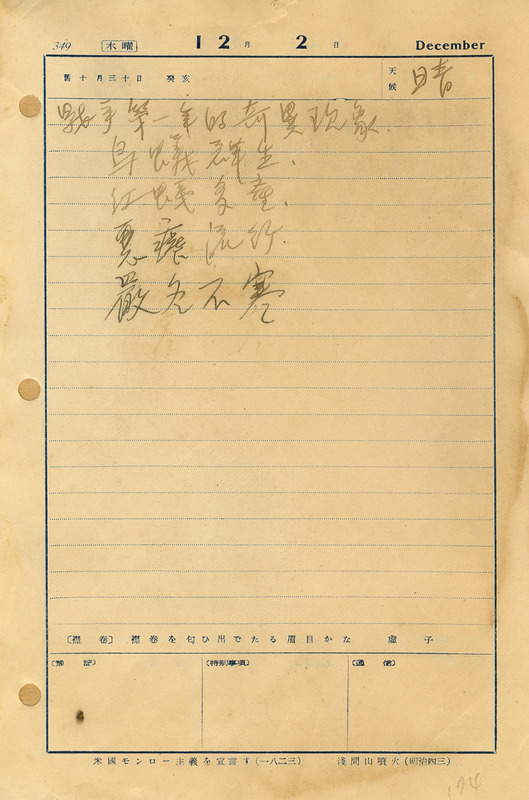 349 木曜 12月 2日 December
舊十月三十日 癸亥 天候 晴
戰爭第一年的奇異現象.
烏蟻群生.
紅蟻多
惡瘧流行.
嚴冬不寒
〔襟 卷〕 襟卷を匂ひ出でたる眉目かな 虛子
〔豫 記〕 〔特別事項〕 〔通 信〕
米國モンロー主義を宣言す(一八二三) 淺間山噴火(明治四三)
174